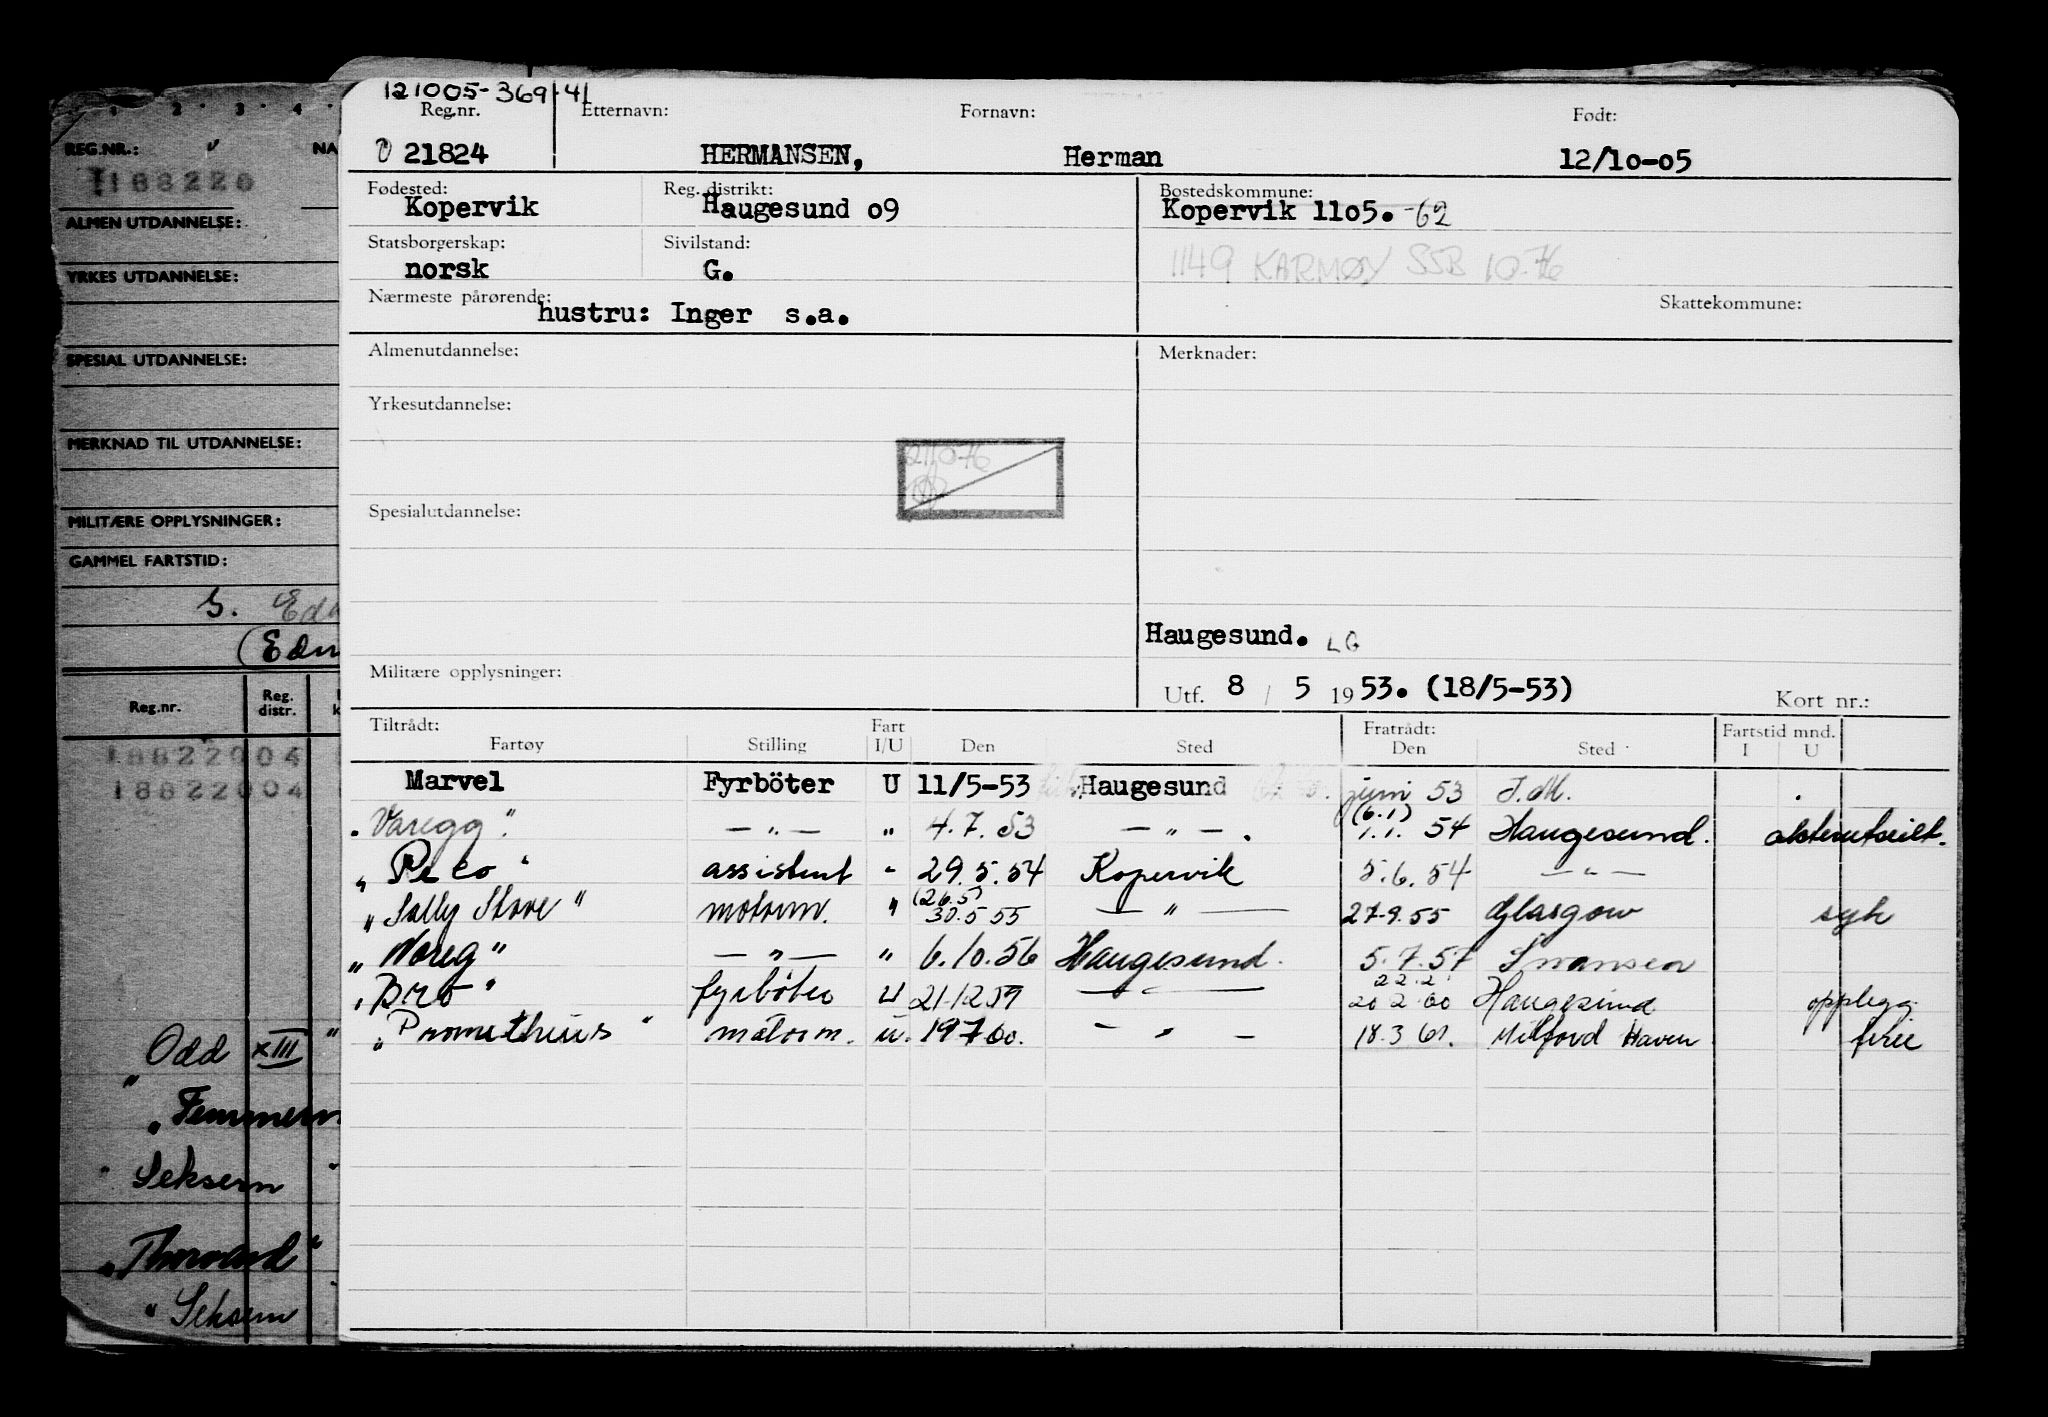 121005-36941
Reg.nr. Etternavn: Fornavn: Født:
21824 HERMANSEN, Herman 12/10-05
Fødested: Reg. distrikt: Bostedskommune:
Kopervik Haugesund 09 Kopervik 1105. -62
Statsborgerskap: Sivilstand:
norsk G. 1149 KARMØY SSB 10.76
Nærmeste pårørende: Skattekommune:
hustru: Inger s.a.
Almenutdannelse: Merknader:
Yrkesutdannelse:
Spesialutdannelse:
Haugesund. LG
Militære opplysninger:
Utf. 8 / 5 1953. (18/5-53) Kort nr.:
Tiltrådt: Fart Fratrådt: Fartstid mnd.
Fartøy Stilling I/U Den Sted Den Sted I U
Marvel Fyrböter U 11/5-53 Haugesund juni 53 I.M.
"Varegg" — " — " 4.7.53 — " — . (6.1)
1.1. 54 Haugesund. akterutseilt.
"Peco" assistent " 29.5.54 Kopervik 5.6.54 — " —
"Sally Stove" motorm. " (26.5)
30.5.55 — " — 27.9.55 Glasgow syk
"Vareg" — " — " 6.10.56 Haugesund. 5.7.57 Swansea
"Bro" fyrböter U 21.12.59 — " — 22.2.
20 2.60 Haugesund opplegg
"Prometheus" motorm. u. 19.7.60. — " — 18.3.61. Milford Haven ferie
1 2 3 4
REG.NR.: NA
188220
ALMEN UTDANNELSE:
YRKES UTDANNELSE:
SPESIAL UTDANNELSE:
MERKNAD TIL UTDANNELSE:
MILITÆRE OPPLYSNINGER:
GAMMEL FARTSTID:
(Edm
Reg.nr. Reg. distr. k
18822004
18822004
"Odd XIII"
"Femmern
"Seksern"
"Thorvard"
"Seksern